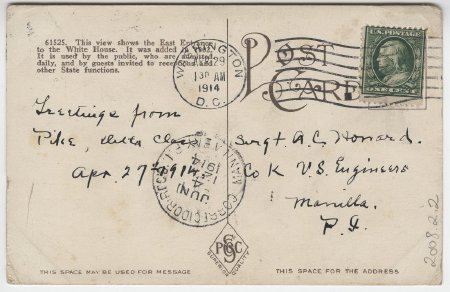 61525. This view shows the East Entrance
to the White House. It was added in
It is used by the public, who are admitted
daily, and by guests invited to receptions and
other State functions.
WASHINGTON
29
130 AM
1914
D.C.
POST
CARD
U.S. POSTAGE
ONE CENT
Greetings from
Pike, Della
Apr. 27th 1914
MANILA
CORREGIDOR
JUN
1914
Sergt A. C. Honard.
Co K U.S. Engineers
Manilla.
P.I.
2008.2.2
SUPERIOR QUALITY
THIS SPACE MAY BE USED FOR MESSAGE
THIS SPACE FOR THE ADDRESS